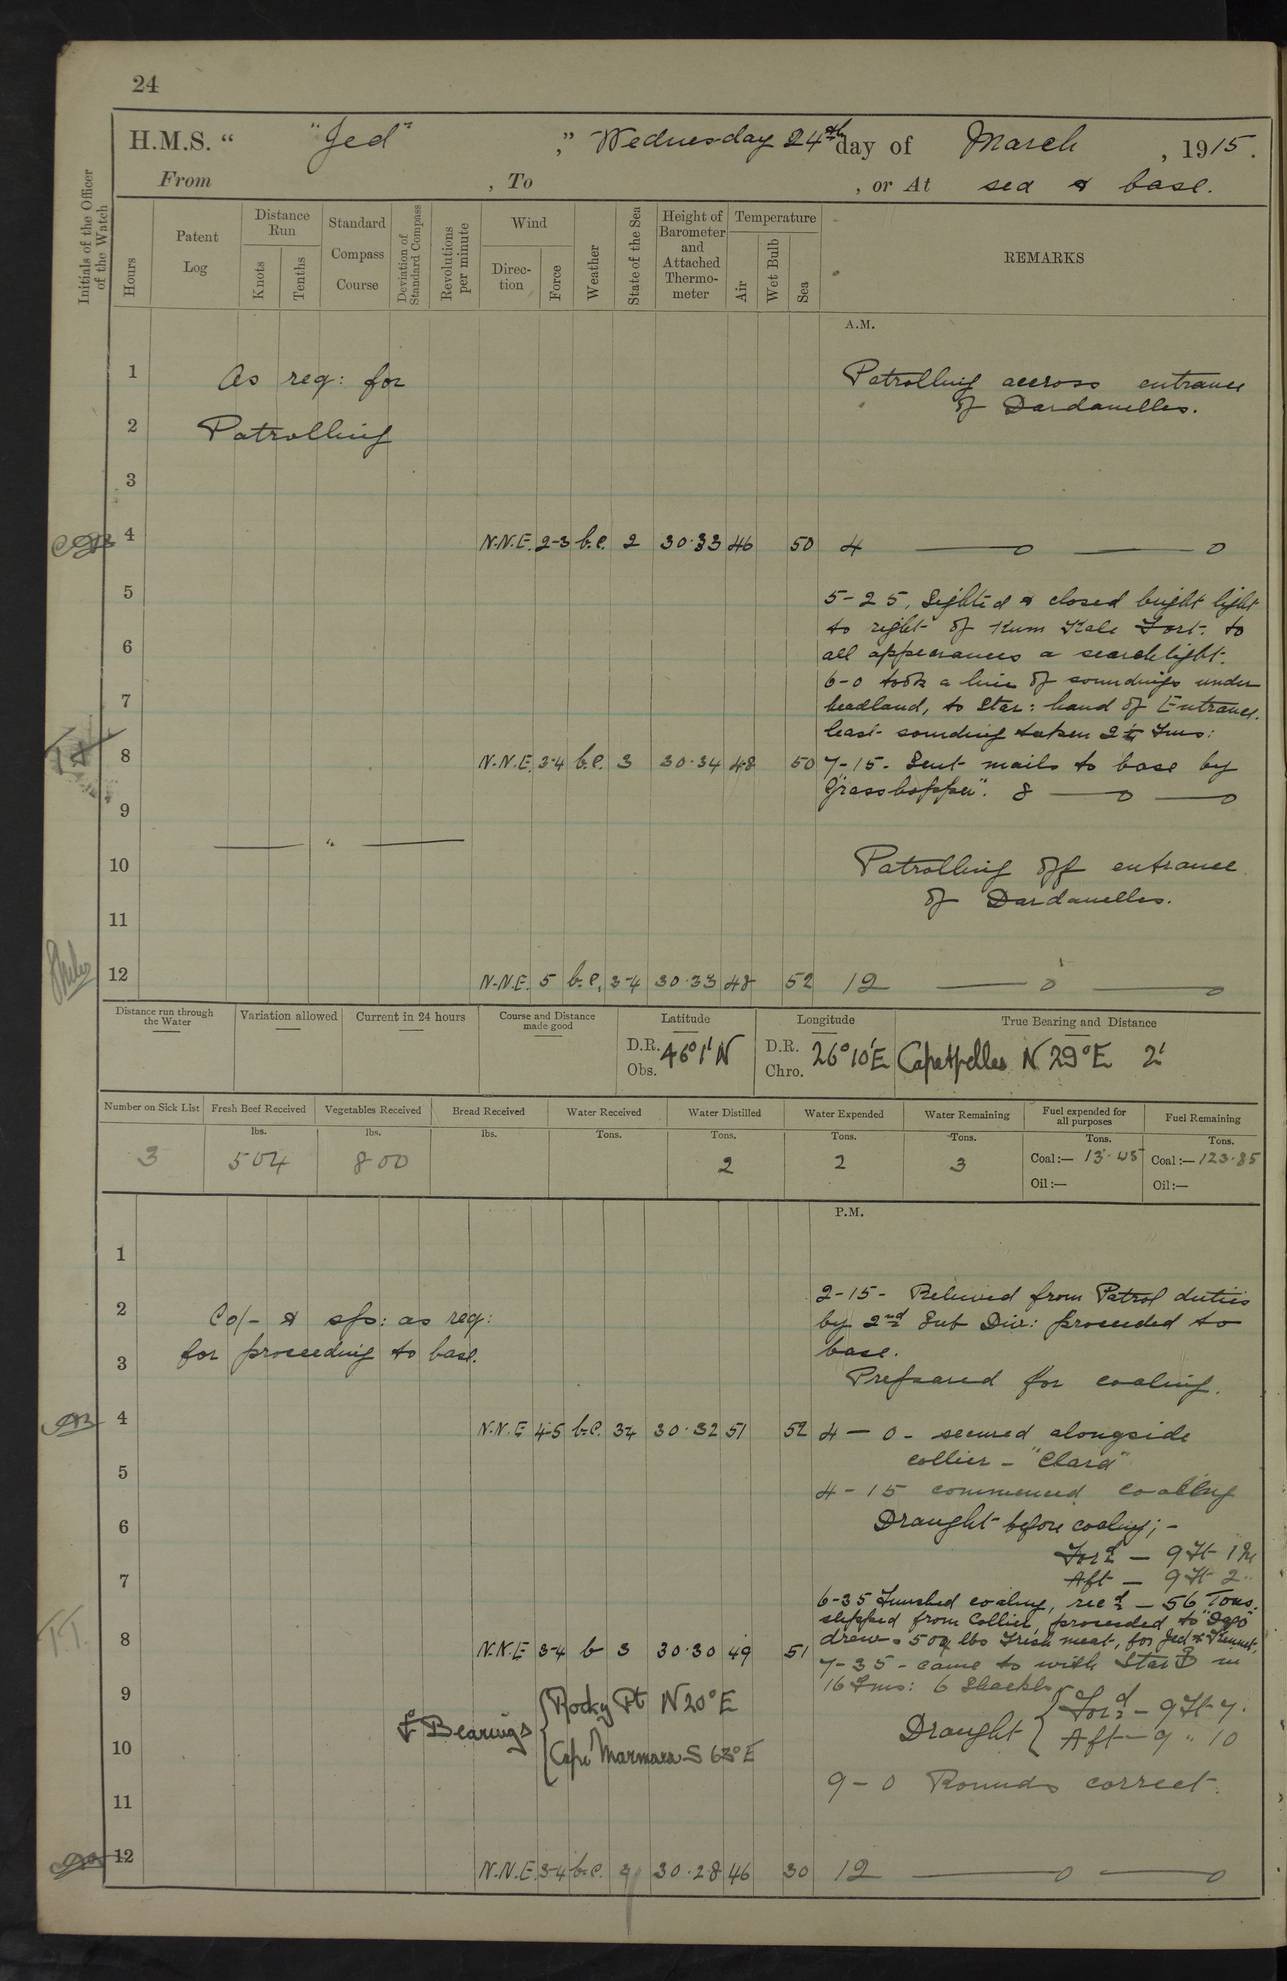 24
H.M.S. "  "Jed"  ," Wednesday 24th day of March , 1915.
From , To , or At sea & base.
Initials of the Officer of the Watch
Hours
Patent Log
Distance Run
Knots
Tenths
Standard Compass Course
Deviation of Standard Compass
Revolutions per minute
Wind
Direction
Force
Weather
State of the Sea
Height of Barometer and Attached Thermometer
Temperature
Air
Wet Bulb
Sea
REMARKS
A.M.
1 As req: for Patrolling accross entrance
of Dardanelles.
2 Patrolling
3
4 N.N.E. 2-3 b.c. 2 30.33 46 50 4 —— o —— o
5 5-25, Sighted & closed bright light
to right of Kum Kale Fort. to
6 all appearances a searchlight.
6-0 took a line of soundings under
7 headland, to Star: hand of Entrance.
least sounding taken 2¼ Fms:
8 N.N.E. 3-4 b.c. 3 30.34 48 50 7-15. Sent mails to base by
"Grasshopper". 8 — o — o
9
—— " ——
10 Patrolling off entrance
of Dardanelles.
11
12 N.N.E. 5 b.c. 3-4 30.33 48 52 12 —— o —— o
Distance run through the Water
Variation allowed
Current in 24 hours
Course and Distance made good
Latitude
D.R. Obs. 46° 1' N
Longitude
D.R. Chro. 26° 10' E
True Bearing and Distance
Cape Helles N 29° E 2'
Number on Sick List
Fresh Beef Received
Vegetables Received
Bread Received
Water Received
Water Distilled
Water Expended
Water Remaining
Fuel expended for all purposes
Fuel Remaining
lbs. lbs. lbs. Tons. Tons. Tons. Tons. Tons. Tons.
3 504 800 2 2 3 Coal:— 13.45 Coal:— 123.85
Oil:— Oil:—
P.M.
1
2-15- Relieved from Patrol duties
2 Co/- & sps: as req: by 2nd Sub Div: proceeded to
3 for proceeding to base. base.
Prepared for coaling.
4 N.N.E 4-5 b.c. 34 30.32 51 52 4 — 0 - secured alongside
collier - "Clara"
5 4-15 commenced coaling
6 Draught before coaling; -
For'd — 9 Ft 1 In
7 Aft — 9 Ft 2 "
6-35 Finished coaling, rec'd — 56 Tons.
slipped from Collier, proceeded to
8 N.N.E 3-4 b 3 30.30 49 51 drew 504 lbs Fresh meat, for Jed & Kennet,
7-35 - came to with Star B in
16 Fms: 6 Shackls
9 Bearings { Rocky Pt N 20° E
Cape Marmara S 63° E
10 Draught { For'd - 9 Ft 7.
Aft - 9 " 10
9-0 Rounds correct.
11
12 N.N.E. 3-4 b.c. 3 30.28 46 30 12 —— o —— o